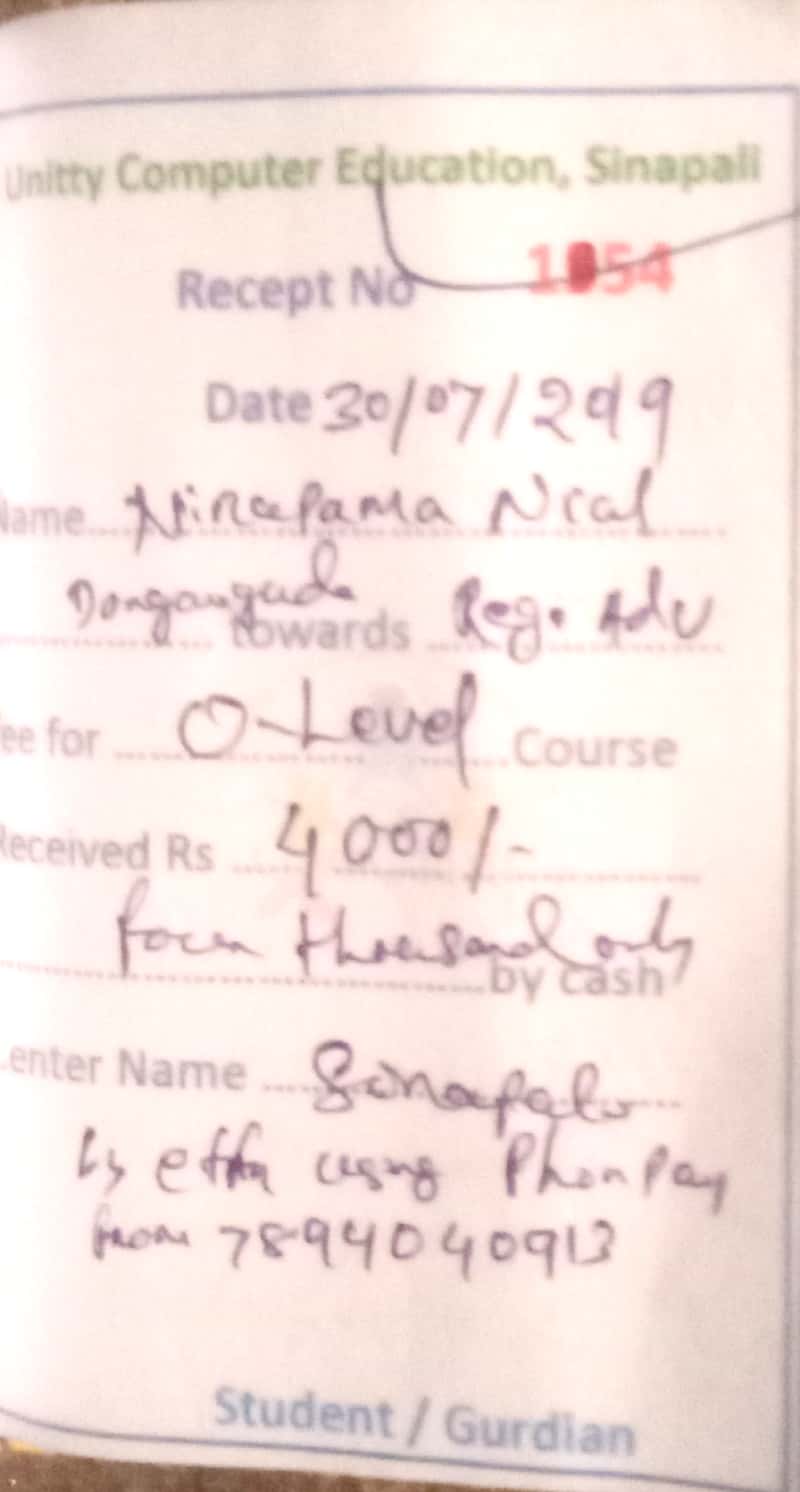 Unitty Computer Education, Sinapali
Recept No
Date 30/07/2019
Name Nirupama Nial
Dongariguda towards Reg. Adv
ee for O-Level Course
Received Rs 4000/-
four thousand only
by cash
enter Name Sinapali
by using PhonPay
from 7894040913
Student / Gurdian